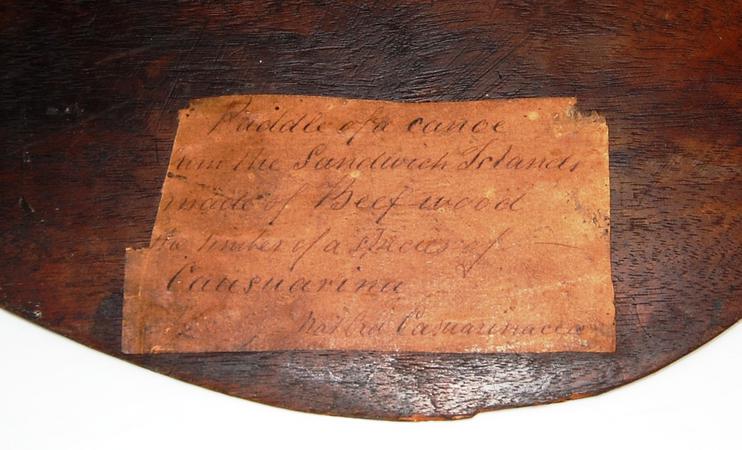 Paddle of a canoe
the Sandwich Islands
made of Beef-wood
the timber of a species of
Causuarina
Nat Ord Casuarinaceae